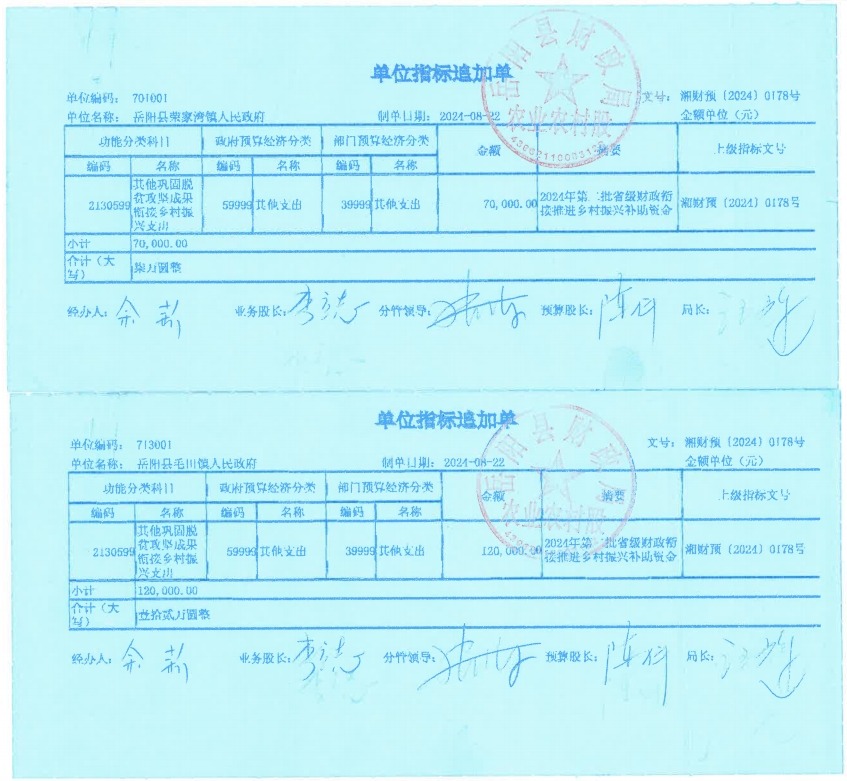 单位指标追加单
单位编码： 701001
文号： 湘财预〔2024〕0178号
单位名称： 岳阳县荣家湾镇人民政府 制单日期： 2024-08-22 金额单位（元）
功能分类科目 政府预算经济分类 部门预算经济分类 金额 摘要 上级指标文号
编码 名称 编码 名称 编码 名称
2130599 其他巩固脱贫攻坚成果衔接乡村振兴支出 59999 其他支出 39999 其他支出 70,000.00 2024年第二批省级财政衔接推进乡村振兴补助资金 湘财预〔2024〕0178号
小计 70,000.00
合计（大写） 柒万圆整
经办人： 余 业务股长： 李 分管领导： 预算股长： 陈 局长：
岳阳县财政局
农业农村股
单位指标追加单
单位编码： 713001
文号： 湘财预〔2024〕0178号
单位名称： 岳阳县毛田镇人民政府 制单日期： 2024-08-22 金额单位（元）
功能分类科目 政府预算经济分类 部门预算经济分类 金额 摘要 上级指标文号
编码 名称 编码 名称 编码 名称
2130599 其他巩固脱贫攻坚成果衔接乡村振兴支出 59999 其他支出 39999 其他支出 120,000.00 2024年第二批省级财政衔接推进乡村振兴补助资金 湘财预〔2024〕0178号
小计 120,000.00
合计（大写） 壹拾贰万圆整
经办人： 余 业务股长： 李 分管领导： 预算股长： 陈 局长：
岳阳县财政局
农业农村股